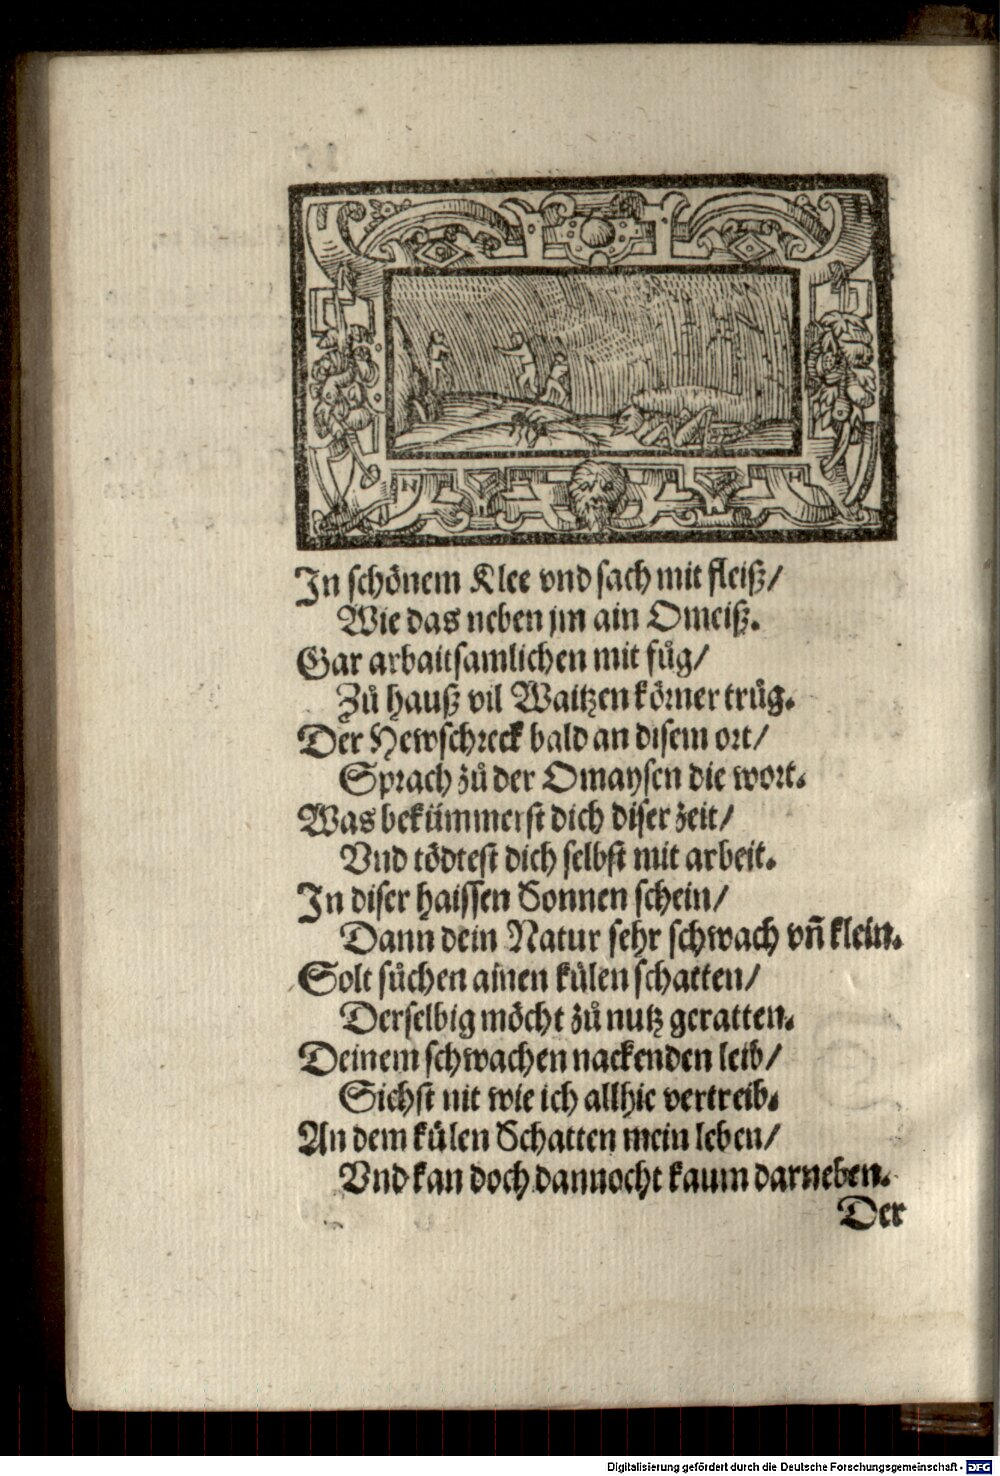 In schönem Klee vnd sach mit fleiß/
Wie das neben jm ain Omeiß.
Gar arbaitsamlichen mit fůg/
Zů hauß vil Waitzen körner trůg.
Der Hewschreck bald an disem ort/
Sprach zů der Omaysen die wort.
Was bekümmerst dich diser zeit/
Vnd tödtest dich selbst mit arbeit.
In diser haissen Sonnen schein/
Dann dein Natur sehr schwach vñ klein.
Solt sůchen ainen külen schatten/
Derselbig möcht zů nutz geratten.
Deinem schwachen nackenden leib/
Sichst nit wie ich allhie vertreib.
An dem külen Schatten mein leben/
Vnd kan doch dannocht kaum darneben.
Der
Digitalisierung gefördert durch die Deutsche Forschungsgemeinschaft - DFG